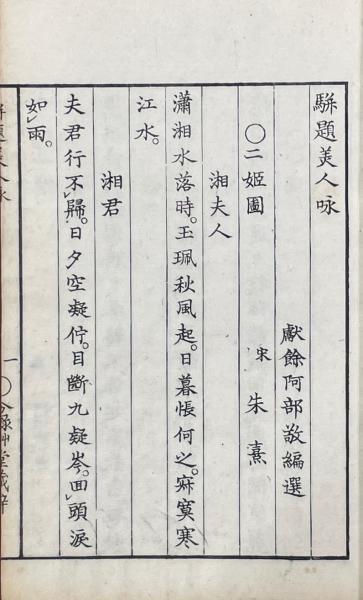 駢題美人咏
獻餘阿部敬編選
〇二姬圖
宋　朱熹
湘夫人
瀟湘水落時。玉珮秋風起。日暮悵何之。寂寞寒
江水。
湘君
夫君行不歸。日夕空凝佇。目斷九疑岑。回頭淚
如雨。
一